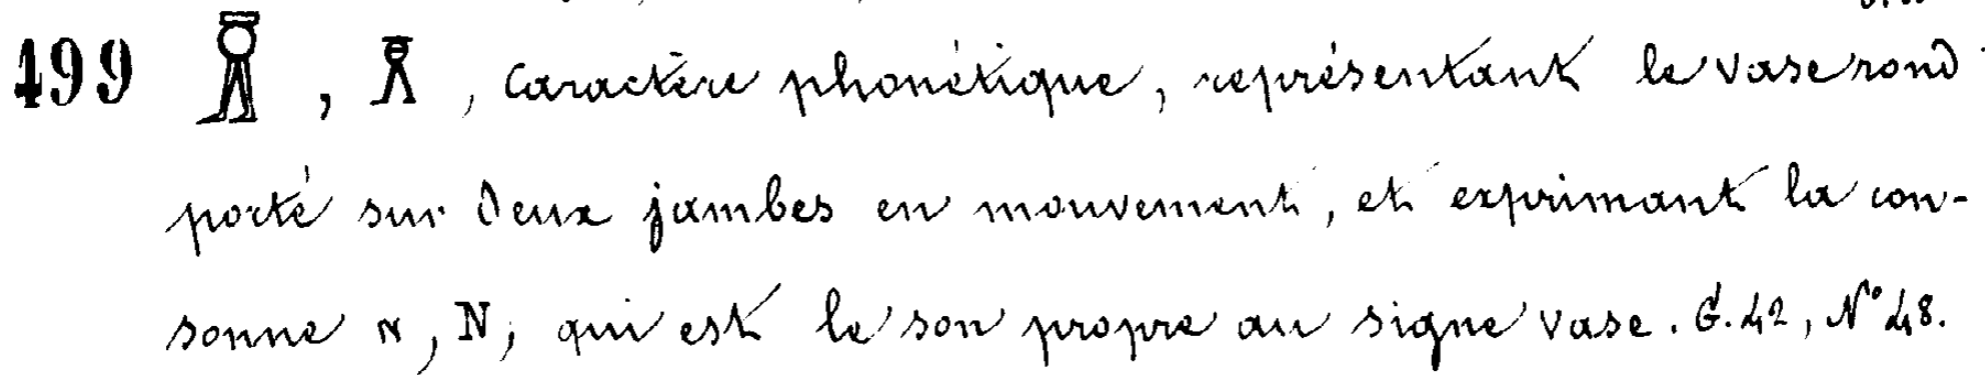 499 𓏎, 𓏎, caractère phonétique, représentant le vase rond
porté sur deux jambes en mouvement, et exprimant la con-
sonne ⲛ, N, qui est le son propre au signe vase. G. 42, Nº 48.